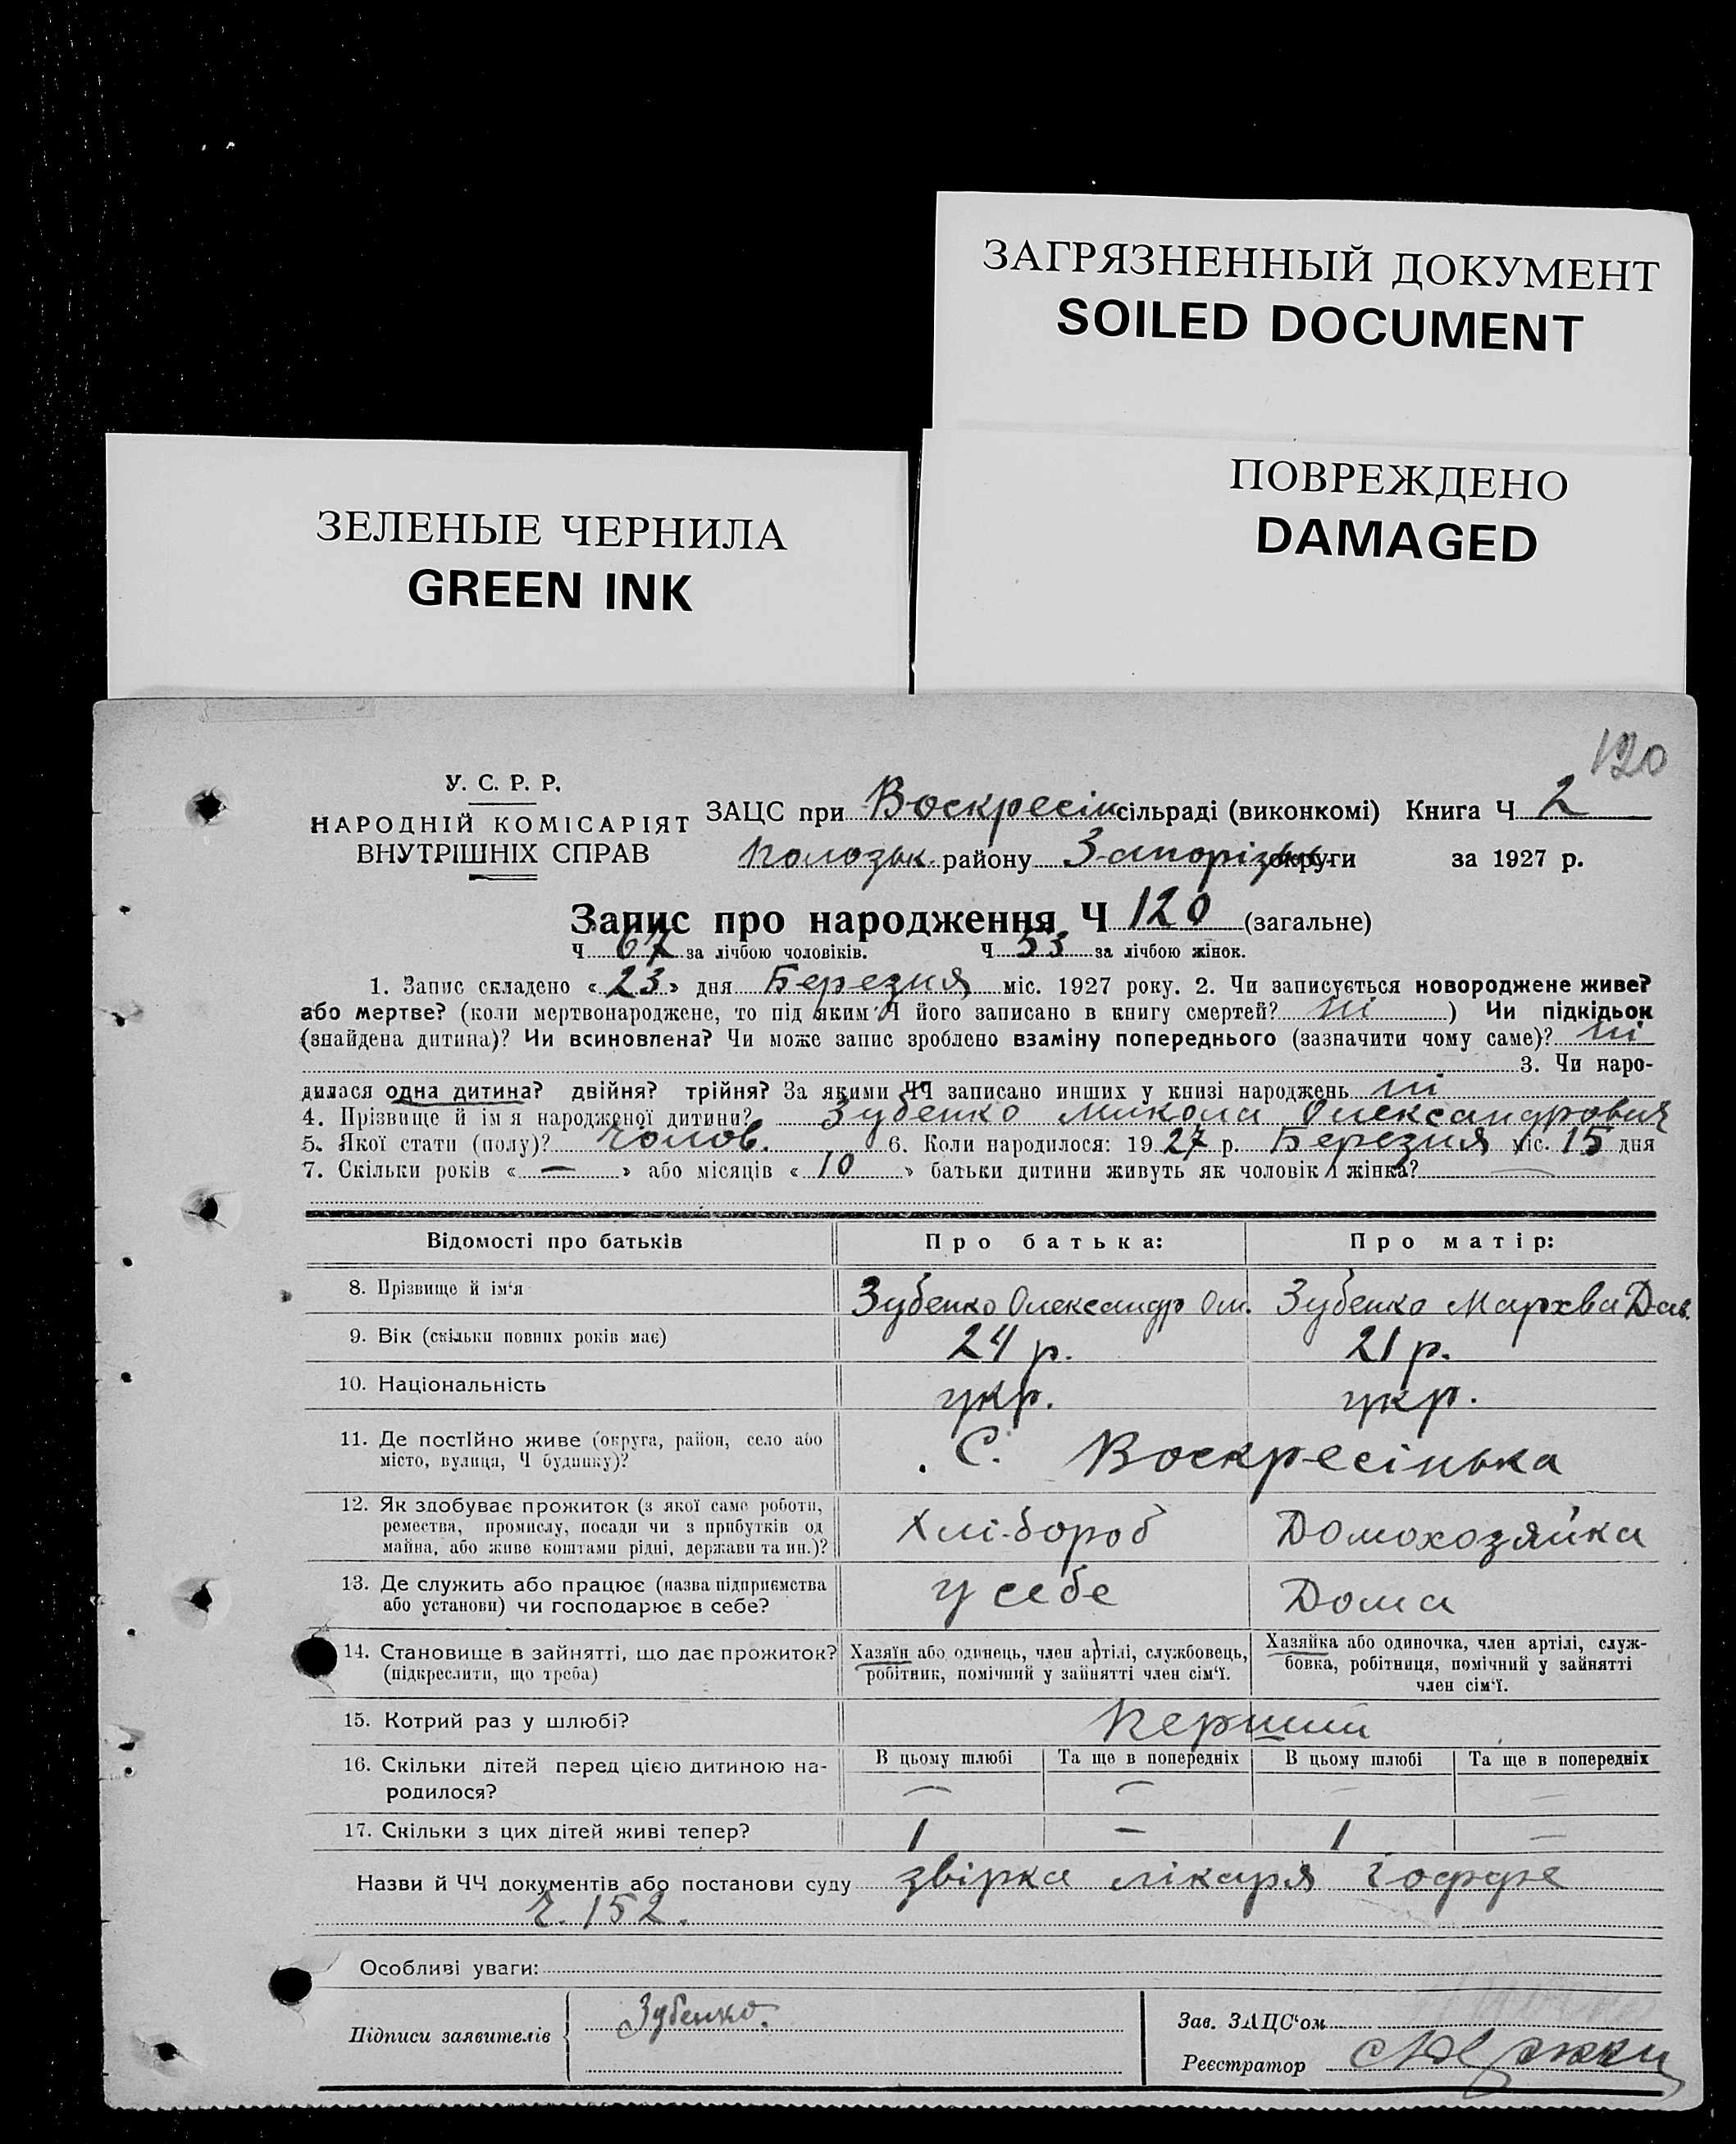 ЗАГРЯЗНЕННЫЙ ДОКУМЕНТ
SOILED DOCUMENT
ПОВРЕЖДЕНО
DAMAGED
ЗЕЛЕНЫЕ ЧЕРНИЛА
GREEN INK
120
У. С. Р. Р.
НАРОДНІЙ КОМІСАРІЯТ
ВНУТРІШНІХ СПРАВ
ЗАЦС при Воскресін сільраді (виконкомі) Книга Ч 2
Пологзьк. району Запорізьк. округи за 1927 р.
Запис про народження Ч 120 (загальне)
Ч 67 за лічбою чоловіків. Ч 53 за лічбою жінок.
1. Запис складено «23» дня Березня міс. 1927 року. 2. Чи записується новороджене живе?
або мертве? (коли мертвонароджене, то під яким Ч його записано в книгу смертей? ні ) Чи підкідьок
(знайдена дитина)? Чи всиновлена? Чи може запис зроблено взаміну попереднього (зазначити чому саме)? ні
3. Чи наро-
дилася одна дитина? двійня? трійня? За якими ЧЧ записано инших у книзі народжень ні
4. Прізвище й ім я народженої дитини? Зубенко Микола Олександрович
5. Якої стати (полу)? Чолов. 6. Коли народилося: 1927 р. Березня міс. 15 дня
7. Скільки років « — » або місяців « 10 » батьки дитини живуть як чоловік і жінка? —
Відомості про батьків Про батька: Про матір:
8. Прізвище й ім‘я Зубенко Олександр Ом. Зубенко Мархва Дав.
9. Вік (скільки повних років має) 24 р. 21 р.
10. Національність укр. укр.
11. Де постійно живе (округа, район, село або
місто, вулиця, Ч будинку)? С. Воскресінька
12. Як здобуває прожиток (з якої саме роботи,
ремества, промислу, посади чи з прибутків од
майна, або живе коштами рідні, держави та ин.)? Хлі-бороб Домохозяйка
13. Де служить або працює (назва підприємства
або установи) чи господарює в себе? у себе Дома
14. Становище в зайнятті, що дає прожиток?
(підкреслити, що треба)
Хазяїн або одинець, член артілі, службовець,
робітник, помічний у зайнятті член сім‘ї.
Хазяйка або одиночка, член артілі, служ-
бовка, робітниця, помічний у зайнятті
член сім‘ї.
15. Котрий раз у шлюбі? Перший
16. Скільки дітей перед цією дитиною на-
родилося?
В цьому шлюбі Та ще в попередніх В цьому шлюбі Та ще в попередніх
— — — —
17. Скільки з цих дітей живі тепер? 1 — 1 —
Назви й ЧЧ документів або постанови суду звірка лікаря Гоффе
Ч. 152.
Особливі уваги:
Підписи заявителів Зубенко.
Зав. ЗАЦС‘ом
Реєстратор